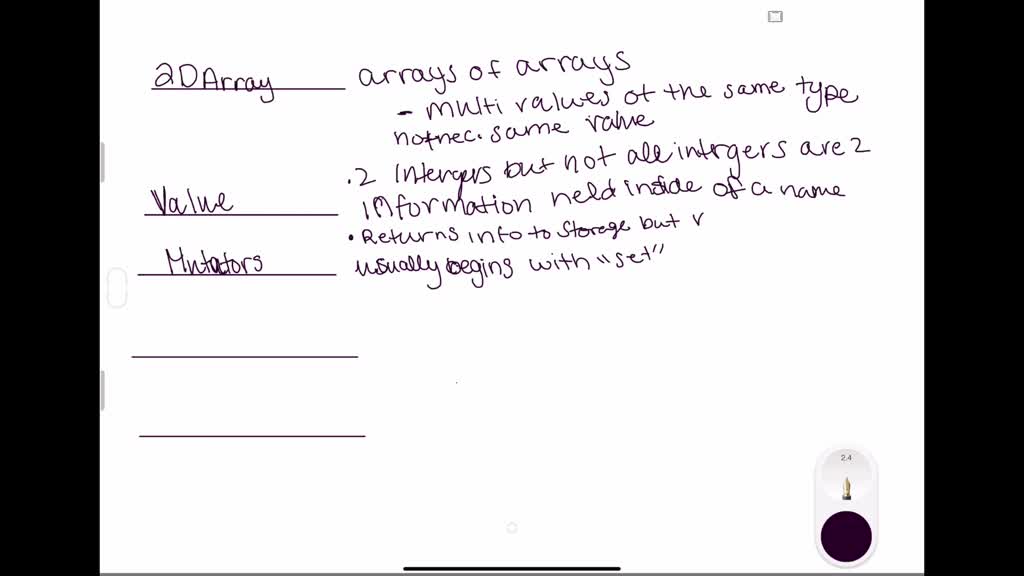 2D Array arrays of arrays
- multi values of the same type
not nec. same value
. 2 Intergers but not all intergers are 2
Value Information held inside of a name
• Returns info to storage but r
Mutators usually begins with "set"
2.4